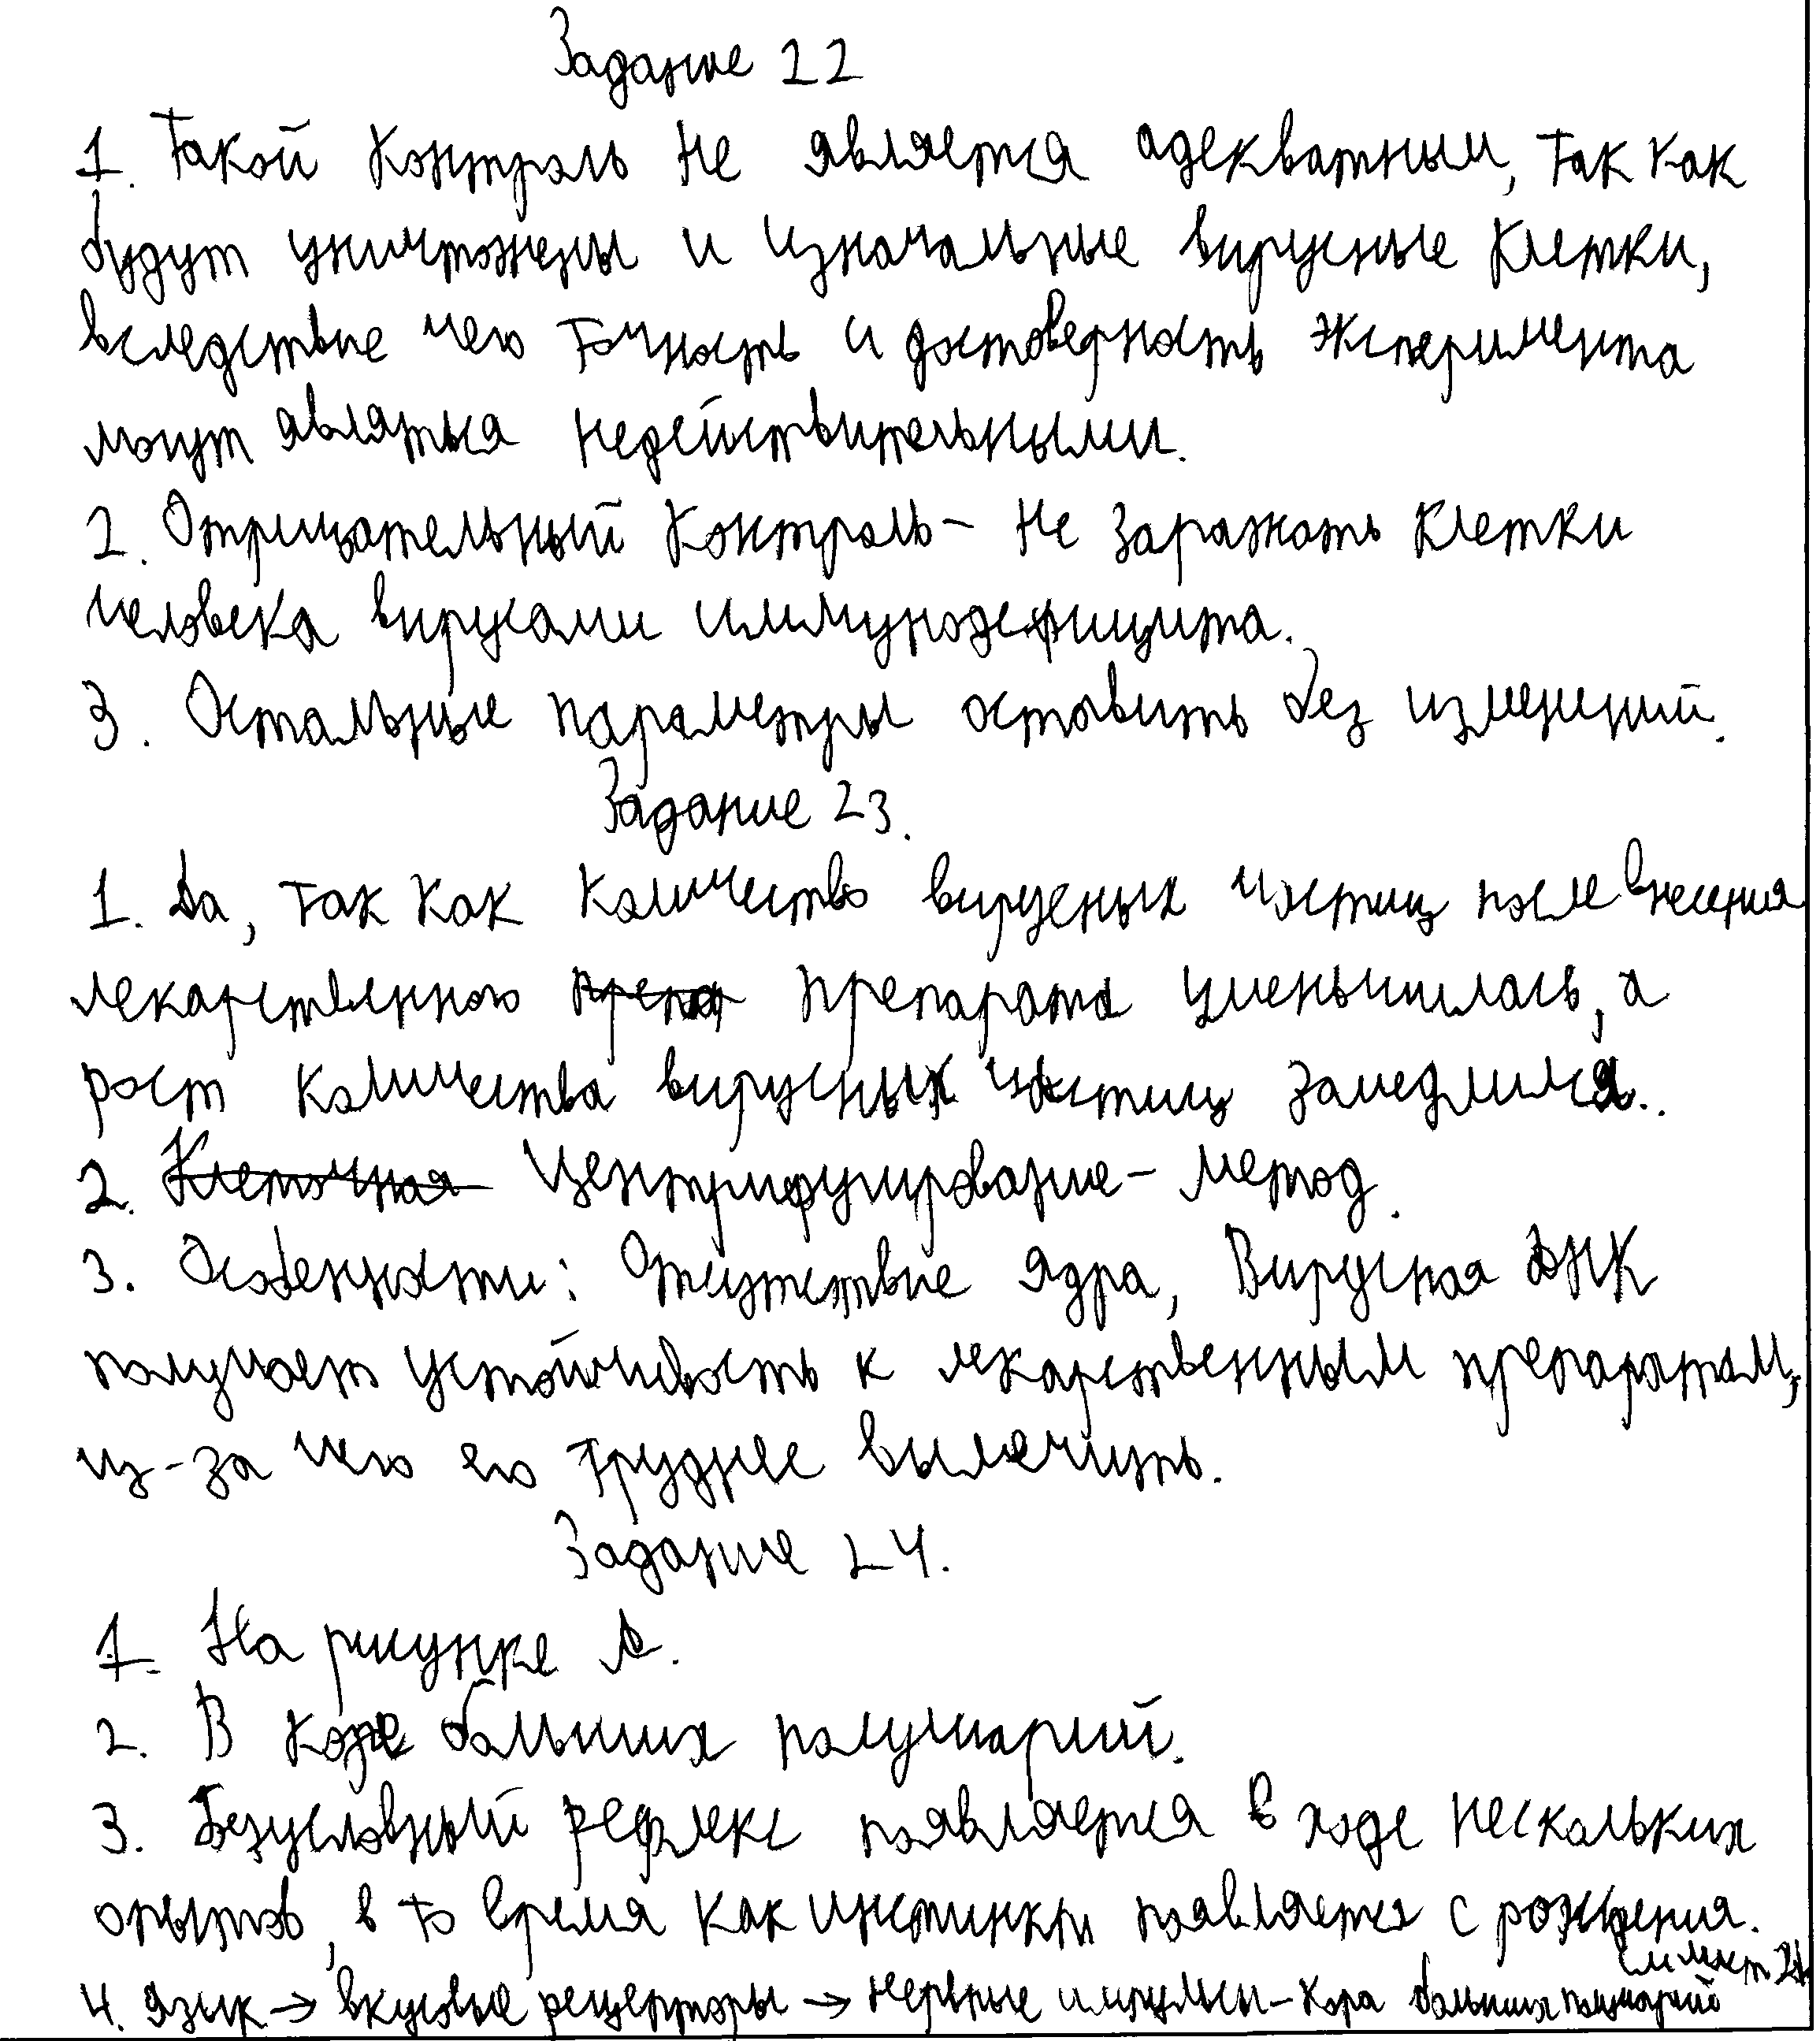 Задание 22
1. Такой контроль не является адекватным, так как
будут уничтожены и изначальные вирусные клетки,
вследствие чего точность и достоверность эксперимента
могут являться недействительными.
2. Отрицательный контроль – не заражать клетки
человека вирусами иммунодефицита.
3. Остальные параметры оставить без изменений.
Задание 23.
1. Да, так как количество вирусных частиц после внесения
лекарственного препарата уменьшилась, а
рост количества вирусных частиц замедлился..
2. Клеточная Центрифугирование – метод.
3. Особенности: Отсутствие ядра, Вирусная ДНК
получает устойчивость к лекарственным препаратам,
из-за чего его труднее вылечить.
Задание 24.
1. На рисунке А.
2. В коре больших полушарий.
3. Безусловный рефлекс появляется в ходе нескольких
опытов, в то время как инстинкты появляется с рождения.
4. Язык → вкусовые рецепторы → нервные импульсы – кора больших полушарий
см лист 2